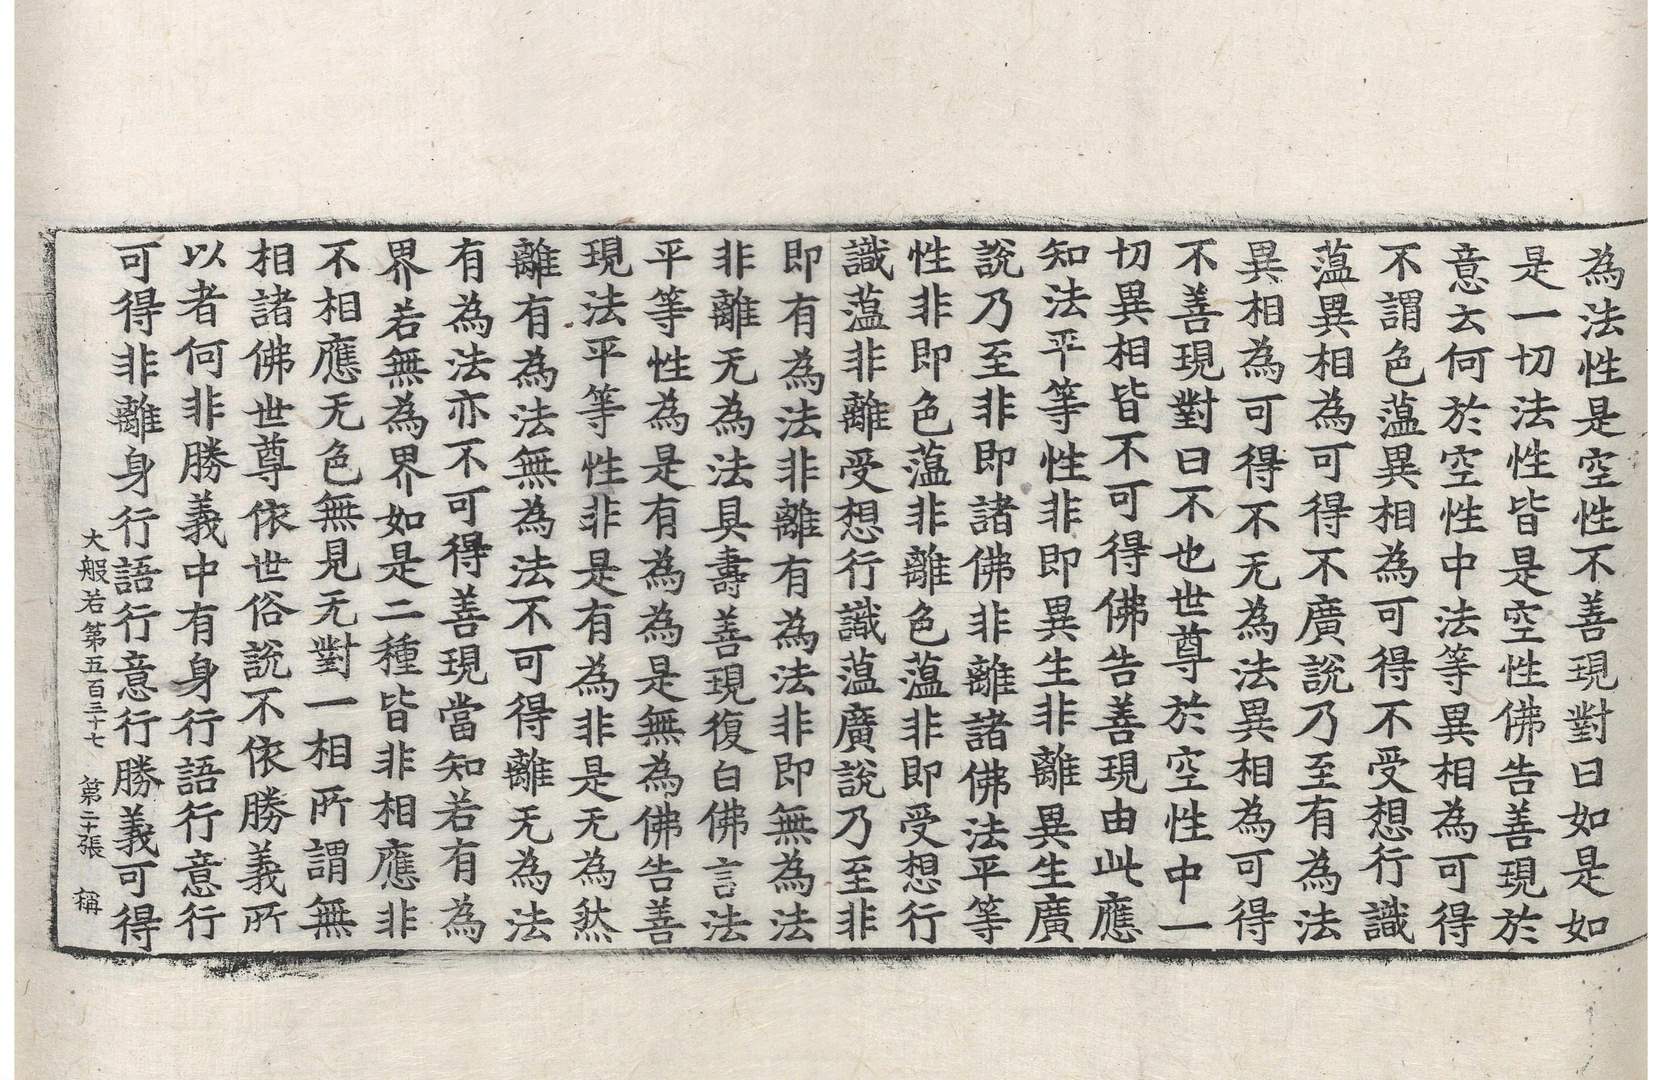 為法性是空性不善現對曰如是如
是一切法性皆是空性佛告善現於
意云何於空性中法等異相為可得
不謂色薀異相為可得不受想行識
薀異相為可得不廣說乃至有為法
異相為可得不无為法異相為可得
不善現對曰不也世尊於空性中一
切異相皆不可得佛告善現由此應
知法平等性非即異生非離異生廣
說乃至非即諸佛非離諸佛法平等
性非即色薀非離色薀非即受想行
識薀非離受想行識薀廣說乃至非
即有為法非離有為法非即無為法
非離无為法具壽善現復白佛言法
平等性為是有為為是無為佛告善
現法平等性非是有為非是无為然
離有為法無為法不可得離无為法
有為法亦不可得善現當知若有為
界若無為界如是二種皆非相應非
不相應无色無見无對一相所謂無
相諸佛世尊依世俗說不依勝義所
以者何非勝義中有身行語行意行
可得非離身行語行意行勝義可得
大般若第五百三十七 第二十張 稱